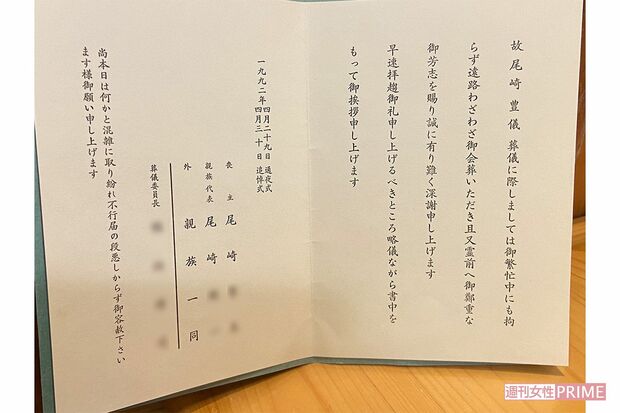 故尾崎豊儀 葬儀に際しましては御繁忙中にも拘
らず遠路わざわざ御会葬いただき且又霊前へ御鄭重な
御芳志を賜り誠に有り難く深謝申し上げます
早速拝趨御礼申し上げるべきところ略儀ながら書中を
もって御挨拶申し上げます
一九九二年四月二十九日 通夜式
四月三十日 追悼式
喪主 尾崎
親族代表 尾崎
外 親族一同
葬儀委員長
尚本日は何かと混雑に取り紛れ不行届の段悪しからず御容赦下さい
ます様御願い申し上げます
週刊女性PRIME